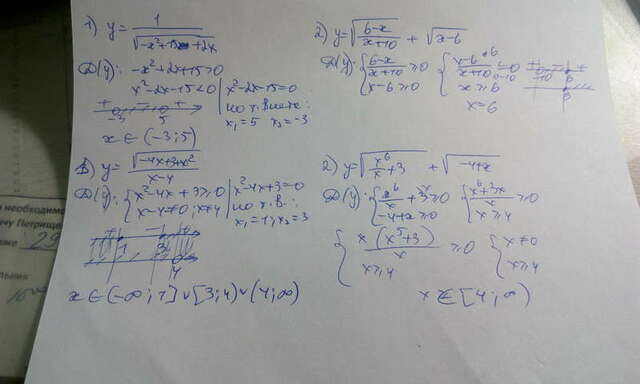 1) y = 1 / √(-x²+15+2x)
D(y): -x²+2x+15>0
x²-2x-15<0
x²-2x-15=0
по т. Виета:
x₁=5 x₂=-3
+ - +
-3 5
x ∈ (-3; 5)
2) y = √((6-x)/(x+10)) + √(x-6)
D(y): { (6-x)/(x+10) ≥0
x-6≥0
{ (x-6)/(x+10)
x≥6
x=6
-10 6
6
1) y = √(-4x+3+x²) / (x-4)
D(y): { x²-4x+3≥0
x-4≠0; x≠4
x²-4x+3=0
по т. В:
x₁=1, x₂=3
1 3
4
x ∈ (-∞; 1] ∪ [3; 4) ∪ (4; ∞)
2) y = √(x⁶/x + 3) + √(-4+x)
D(y): { x⁶/x + 3 ≥0
-4+x≥0
{ (x⁶+3x)/x ≥0
x≥4
{ x(x⁵+3)/x ≥0
x≥4
{ x≠0
x≥4
x ∈ [4; ∞)
необходимо
ачу Петрище